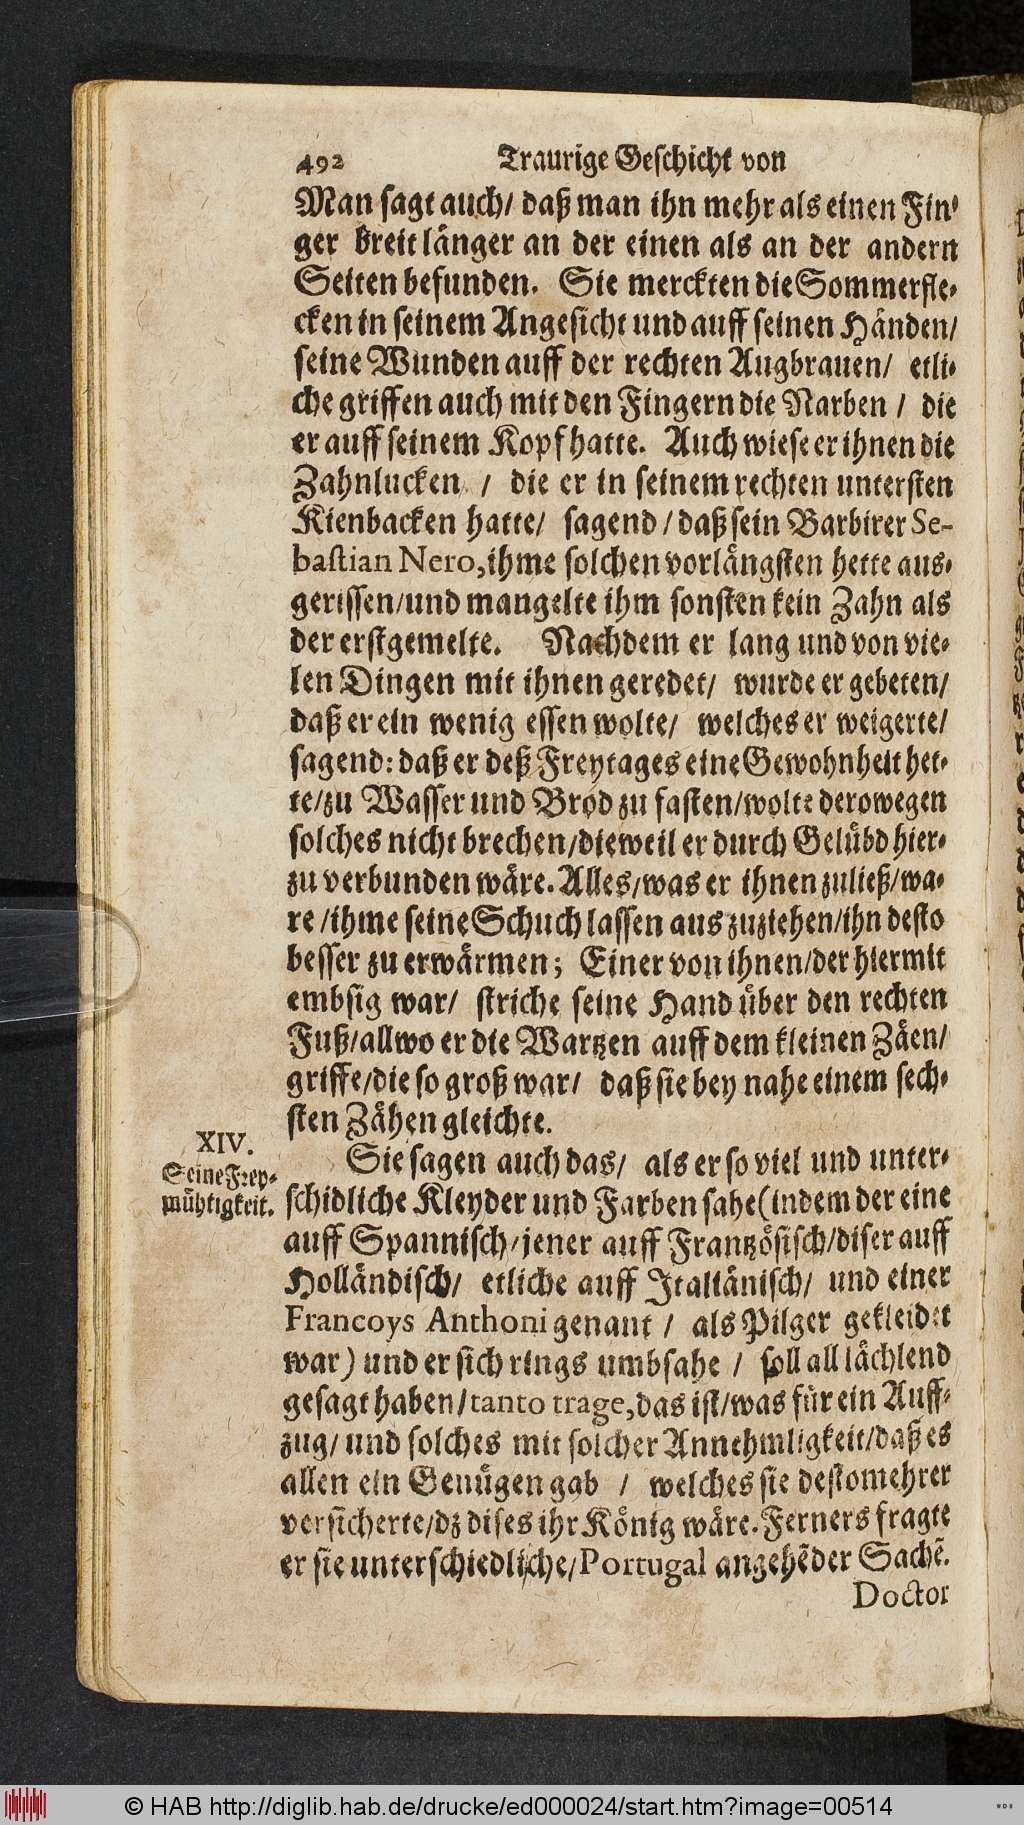 492 Traurige Geschicht von
Man sagt auch/ daß man ihn mehr als einen Fin-
ger breit länger an der einen als an der andern
Seiten befunden. Sie merckten die Sommerfle-
cken in seinem Angesicht und auff seinen Händen/
seine Wunden auff der rechten Augbrauen/ etli-
che griffen auch mit den Fingern die Narben / die
er auff seinem Kopf hatte. Auch wiese er ihnen die
Zahnlucken / die er in seinem rechten untersten
Kienbacken hatte/ sagend / daß sein Barbirer Se-
bastian Nero, ihme solchen vorlängsten hette aus-
gerissen/und mangelte ihm sonsten kein Zahn als
der erstgemelte. Nachdem er lang und von vie-
len Dingen mit ihnen geredet/ wurde er gebeten/
daß er ein wenig essen wolte/ welches er weigerte/
sagend: daß er deß Freytages eine Gewohnheit het-
te/zu Wasser und Brod zu fasten/wolte derowegen
solches nicht brechen/dieweil er durch Gelübd hier-
zu verbunden wäre. Alles/was er ihnen zuließ/wa-
re /ihme seine Schuch lassen aus zuziehen/ihn desto
besser zu erwärmen; Einer von ihnen/der hiermit
embsig war/ striche seine Hand über den rechten
Fuß/allwo er die Wartzen auff dem kleinen Zäen/
griffe/die so groß war/ daß sie bey nahe einem sech-
sten Zähen gleichte.
XIV.
Seine Frey-
mühtigkeit.
Sie sagen auch das/ als er so viel und unter-
schidliche Kleyder und Farben sahe (indem der eine
auff Spannisch/jener auff Frantzösisch/diser auff
Holländisch/ etliche auff Italiänisch/ und einer
Francoys Anthoni genant / als Pilger gekleidet
war) und er sich rings umbsahe / soll all lächlend
gesagt haben/tanto trage, das ist/was für ein Auff-
zug/ und solches mit solcher Annehmligkeit/daß es
allen ein Genügen gab / welches sie destomehrer
versicherte/dz dises ihr König wäre. Ferners fragte
er sie unterschiedliche/Portugal angehẽder Sachẽ.
Doctor
© HAB http://diglib.hab.de/drucke/ed000024/start.htm?image=00514